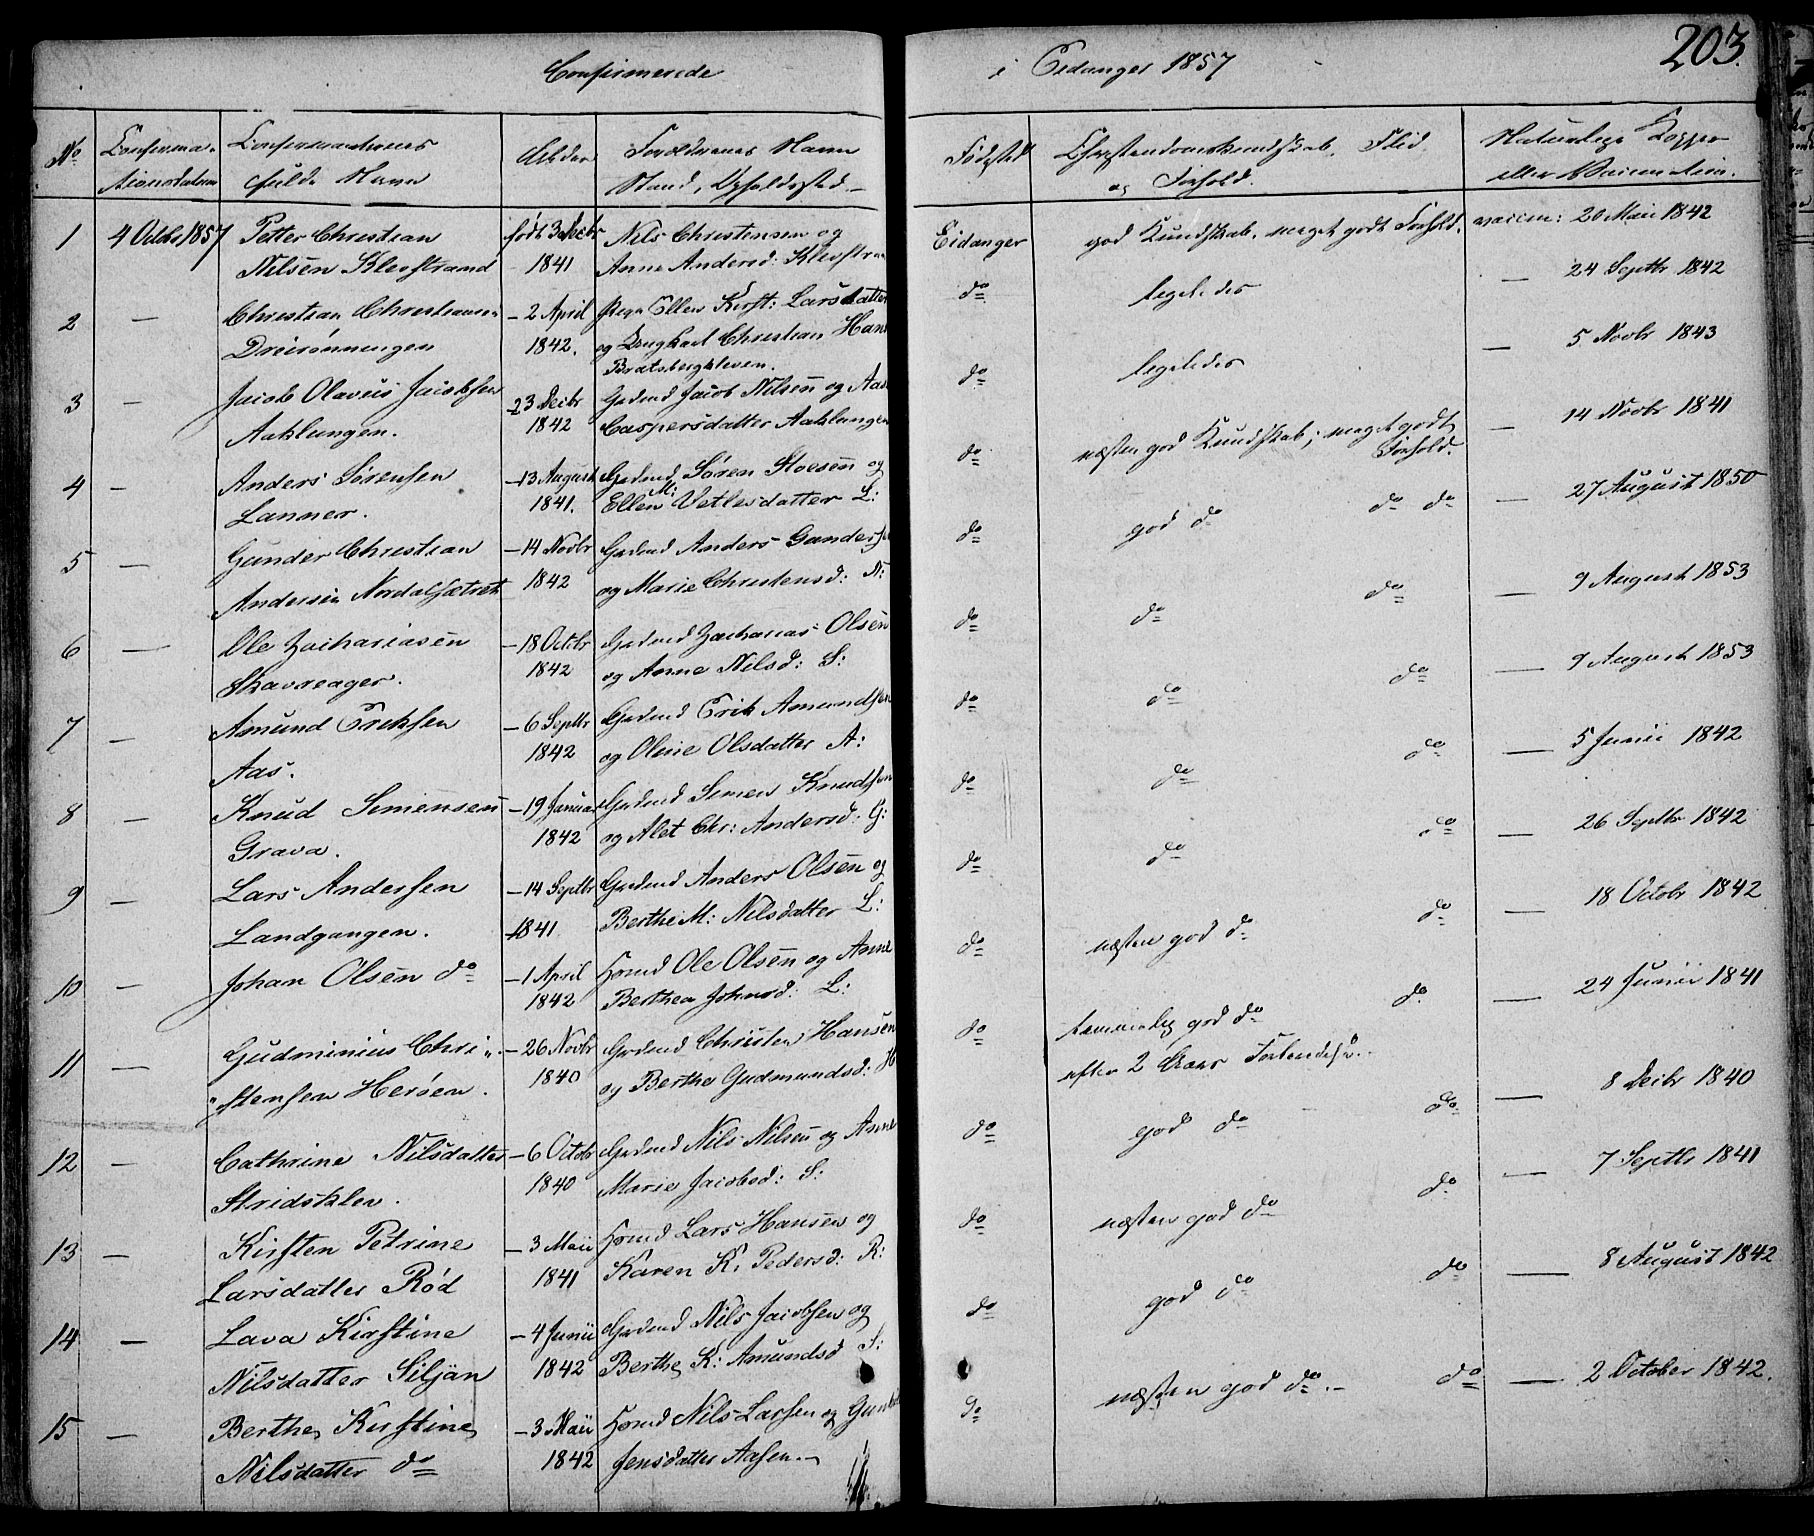 203.
Confirmerede
i Eidanger 1857
No
Confirma-
tionsdatum
Confirmandernes
fulde Navn
Alder
Forældrenes Navn
Stand, Opholdssted
Fødested
Christendomskundskab, Flid
og Forhold.
Naturlige Kopper
eller Vaccination.
1 4 Octbr 1857 Petter Christian født 3 Decbr Nils Christensen og
Nilsen Klevstrand 1841 Anne Andersd: Klevstr
Eidanger god Kundskab, meget godt Forhold. vaccin: 20 Mai 1842
2 — Christian Christiansen – 2 April Pige Ellen Kirst: Larsdatter
Dreirønningen 1842. og Ungkarl Christian Hans
Bratsbergkleven.
do ligeledes — 24 Septbr 1842
3 — Jacob Olavus Jacobsen – 23 Decbr Gadmd Jacob Nilsen og Aase
Aaklungen. 1842 Caspersdatter Aaklungen
do ligeledes — 5 Novbr 1843
4 — Anders Sørensen – 13 August Gadmd Søren Stoesen og
Lanner. 1841. Ellen M: Vetlesdatter L:
do næsten god Kundskab; meget godt
Forhold. — 14 Novbr 1841
5 — Gunder Christian – 14 Novbr Gadmd Anders Gunders
Andersen Nordalsætret 1842 og Marie Christensd: N:
do god do do do — 27 August 1850
6 — Ole Zachariasen – 18 Octbr Gadmd Zacharias Olsen
Skavreager. 1842 og Anne Nilsd: S:
do do do — 9 August 1853
7 — Amund Eriksen – 6 Septbr Gadmd Erik Amundsen
Aas. 1842 og Olene Olsdatter A:
do do do — 9 August 1853
8 — Knud Simensen – 19 Januar Gadmd Simen Knudsen
Grava. 1842 og Alet Chr: Andersd: G:
do do do — 5 Junii 1842
9 — Lars Andersen – 14 Septbr Gadmd Anders Olsen og
Landgangen. 1841 Berthe M: Nilsdatter L:
do do do — 26 Septbr 1842
10 — Johan Olsen do – 1 April Hsmd Ole Olsen og Anne
1842 Berthea Johnsd: L:
do næsten god do do — 18 Octobr 1842
11 — Gudminius Chri – 26 Novbr Gadmd Christen Hansen
stensen Herøen. 1840 og Berthe Gudmundsd: H
do temmelig god do do — 24 Junii 1841
efter 2 Aars Forberedelse.
12 — Cathrine Nilsdatter – 6 Octobr Gadmd Nils Nilsen og Anne
Stridsklev. 1840 Marie Jacobsd: S:
do god do do — 8 Decbr 1840
13 — Kirsten Petrine – 3 Maii Hsmd Lars Hansen og
Larsdatter Rød 1841 Karen K. Pedersd: R:
do næsten god do do — 7 Septbr 1841
14 — Lava Kirstine – 4 Junii Gadmd Nils Jacobsen og
Nilsdatter Siljan 1842 Berthe K: Amundsd S:
do god do do — 8 August 1842
15 — Berthe Kirstine – 3 Maii Hsmd Nils Larsen og Gunh
Nilsdatter do 1842 Jensdatter Aasen.
do næsten god do. do — 2 October 1842.